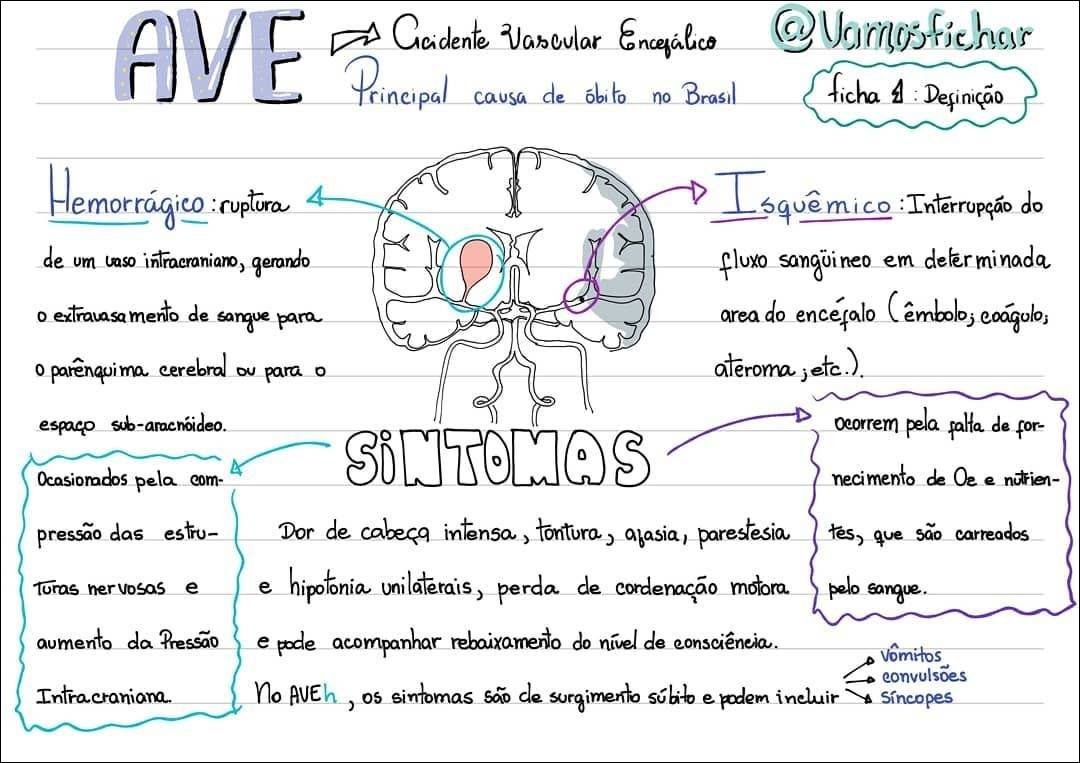 AVE → Acidente Vascular Encefálico
Principal causa de óbito no Brasil
@Vamosfichar
ficha 1 : Definição
Hemorrágico : ruptura
de um vaso intracraniano, gerando
o extravasamento de sangue para
o parênquima cerebral ou para o
espaço sub-aracnóideo.
Isquêmico : Interrupção do
fluxo sangüineo em determinada
area do encéfalo (êmbolo; coágulo;
ateroma ; etc.).
SINTOMAS
Ocasionados pela com-
pressão das estru-
turas nervosas e
aumento da Pressão
Intracraniana.
Dor de cabeça intensa, tontura, afasia, parestesia
e hipotonia unilaterais, perda de cordenação motora
e pode acompanhar rebaixamento do nível de consciência.
No AVEh, os sintomas são de surgimento súbito e podem incluir
vômitos
convulsões
síncopes
ocorrem pela falta de for-
necimento de O2 e nutrien-
tes, que são carreados
pelo sangue.